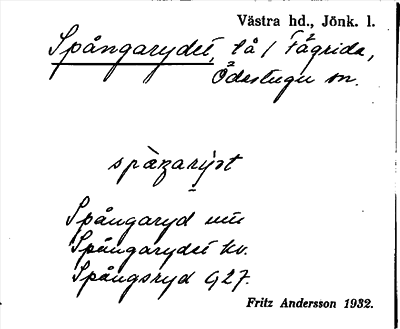 Västra hd., Jönk. l.
Spångarydet, tå / Fågrida,
Ödestugu sn.
Spångaryd
Spångarydet kv.
Spångsryd G27.
Fritz Andersson 1932.